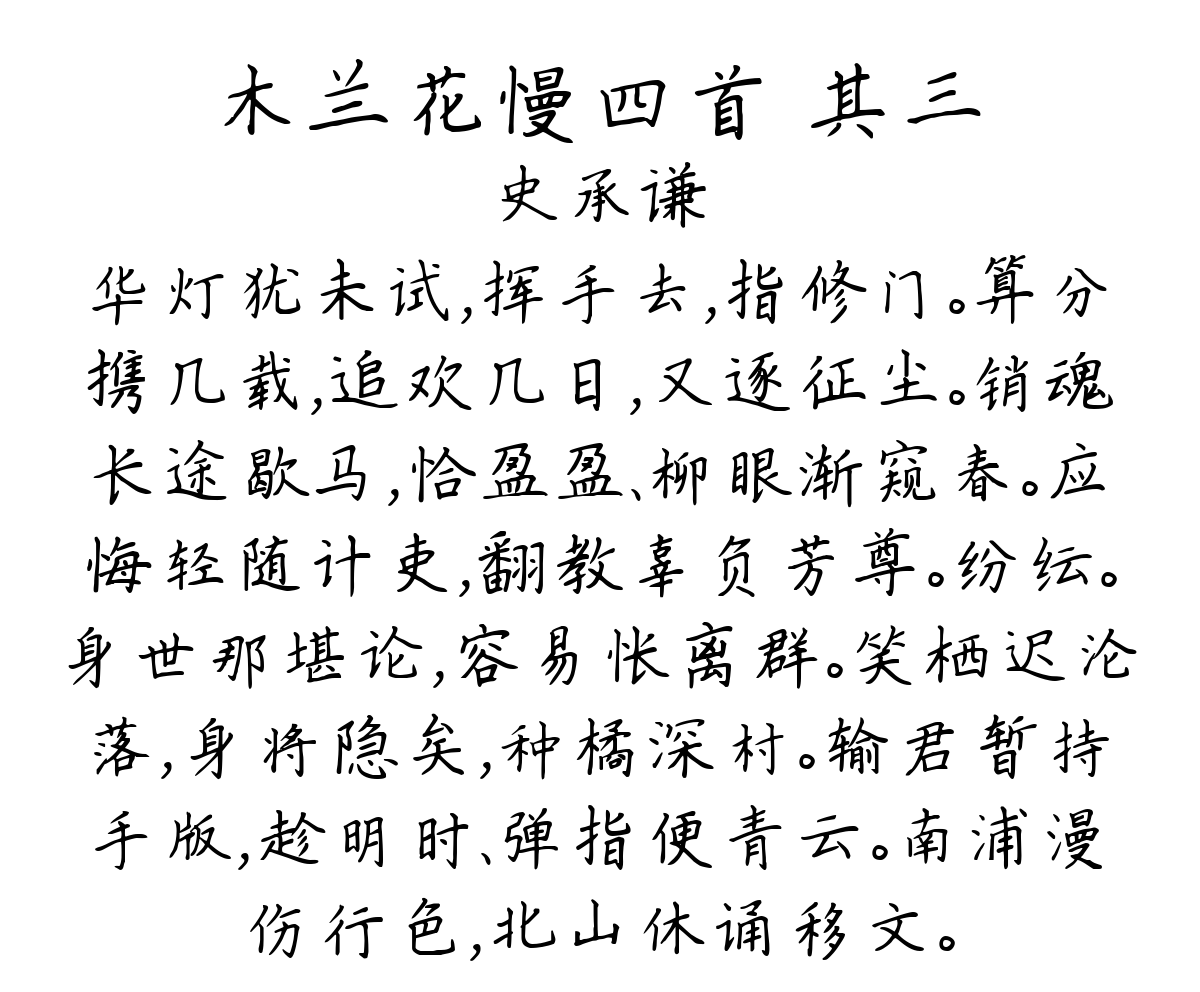 木兰花慢四首 其三
史承谦
华灯犹未试,挥手去,指修门。算分
携几载,追欢几日,又逐征尘。销魂
长途歇马,恰盈盈、柳眼渐窥春。应
悔轻随计吏,翻教辜负芳尊。纷纭。
身世那堪论,容易怅离群。笑栖迟沦
落,身将隐矣,种橘深村。输君暂持
手版,趁明时、弹指便青云。南浦漫
伤行色,北山休诵移文。